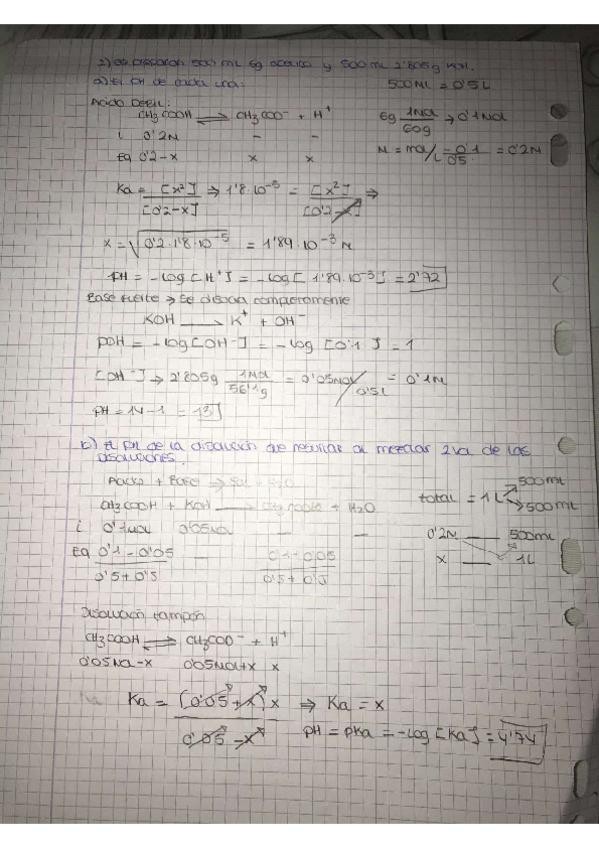 2) Se preparan 500 mL 6g acético y 500 mL 2'805g KOH.
a) El pH de cada una: 500 mL = 0'5 L
Ácido Débil:
CH3COOH ⇌ CH3COO⁻ + H⁺ 6g 1mol/60g → 0'1 mol
i 0'2M - -
Eq 0'2-x x x M = mol/L = 0'1/0'5 = 0'2M
Ka = [x²]/[0'2-x] ⇒ 1'8·10⁻⁵ = [x²]/[0'2-x] ⇒
x = √0'2·1'8·10⁻⁵ = 1'89·10⁻³ M
pH = -log[H⁺] = -log[1'89·10⁻³] = 2'72
Base fuerte → se disocia completamente
KOH → K⁺ + OH⁻
pOH = -log[OH⁻] = -log[0'1] = 1
[OH⁻] → 2'805g 1mol/56'1g = 0'05mol/0'5L = 0'1M
pH = 14-1 = 13
b) El pH de la disolución que resulta al mezclar 2 vol de las
disoluciones.
Ácido + Base → Sal + H2O
total = 1L 500mL
500mL
CH3COOH + KOH → + H2O
i 0'1mol 0'05mol - -
0'2M — 500mL
x — 1L
Eq 0'1-0'05/0'5+0'5 - 0'1-0'05/0'5+0'5
Disolución tampón
CH3COOH ⇌ CH3COO⁻ + H⁺
0'05Mol-x 0'05Mol+x x
Ka = [0'05+x]x/0'05-x ⇒ Ka = x
pH = pKa = -log[Ka] = 4'74